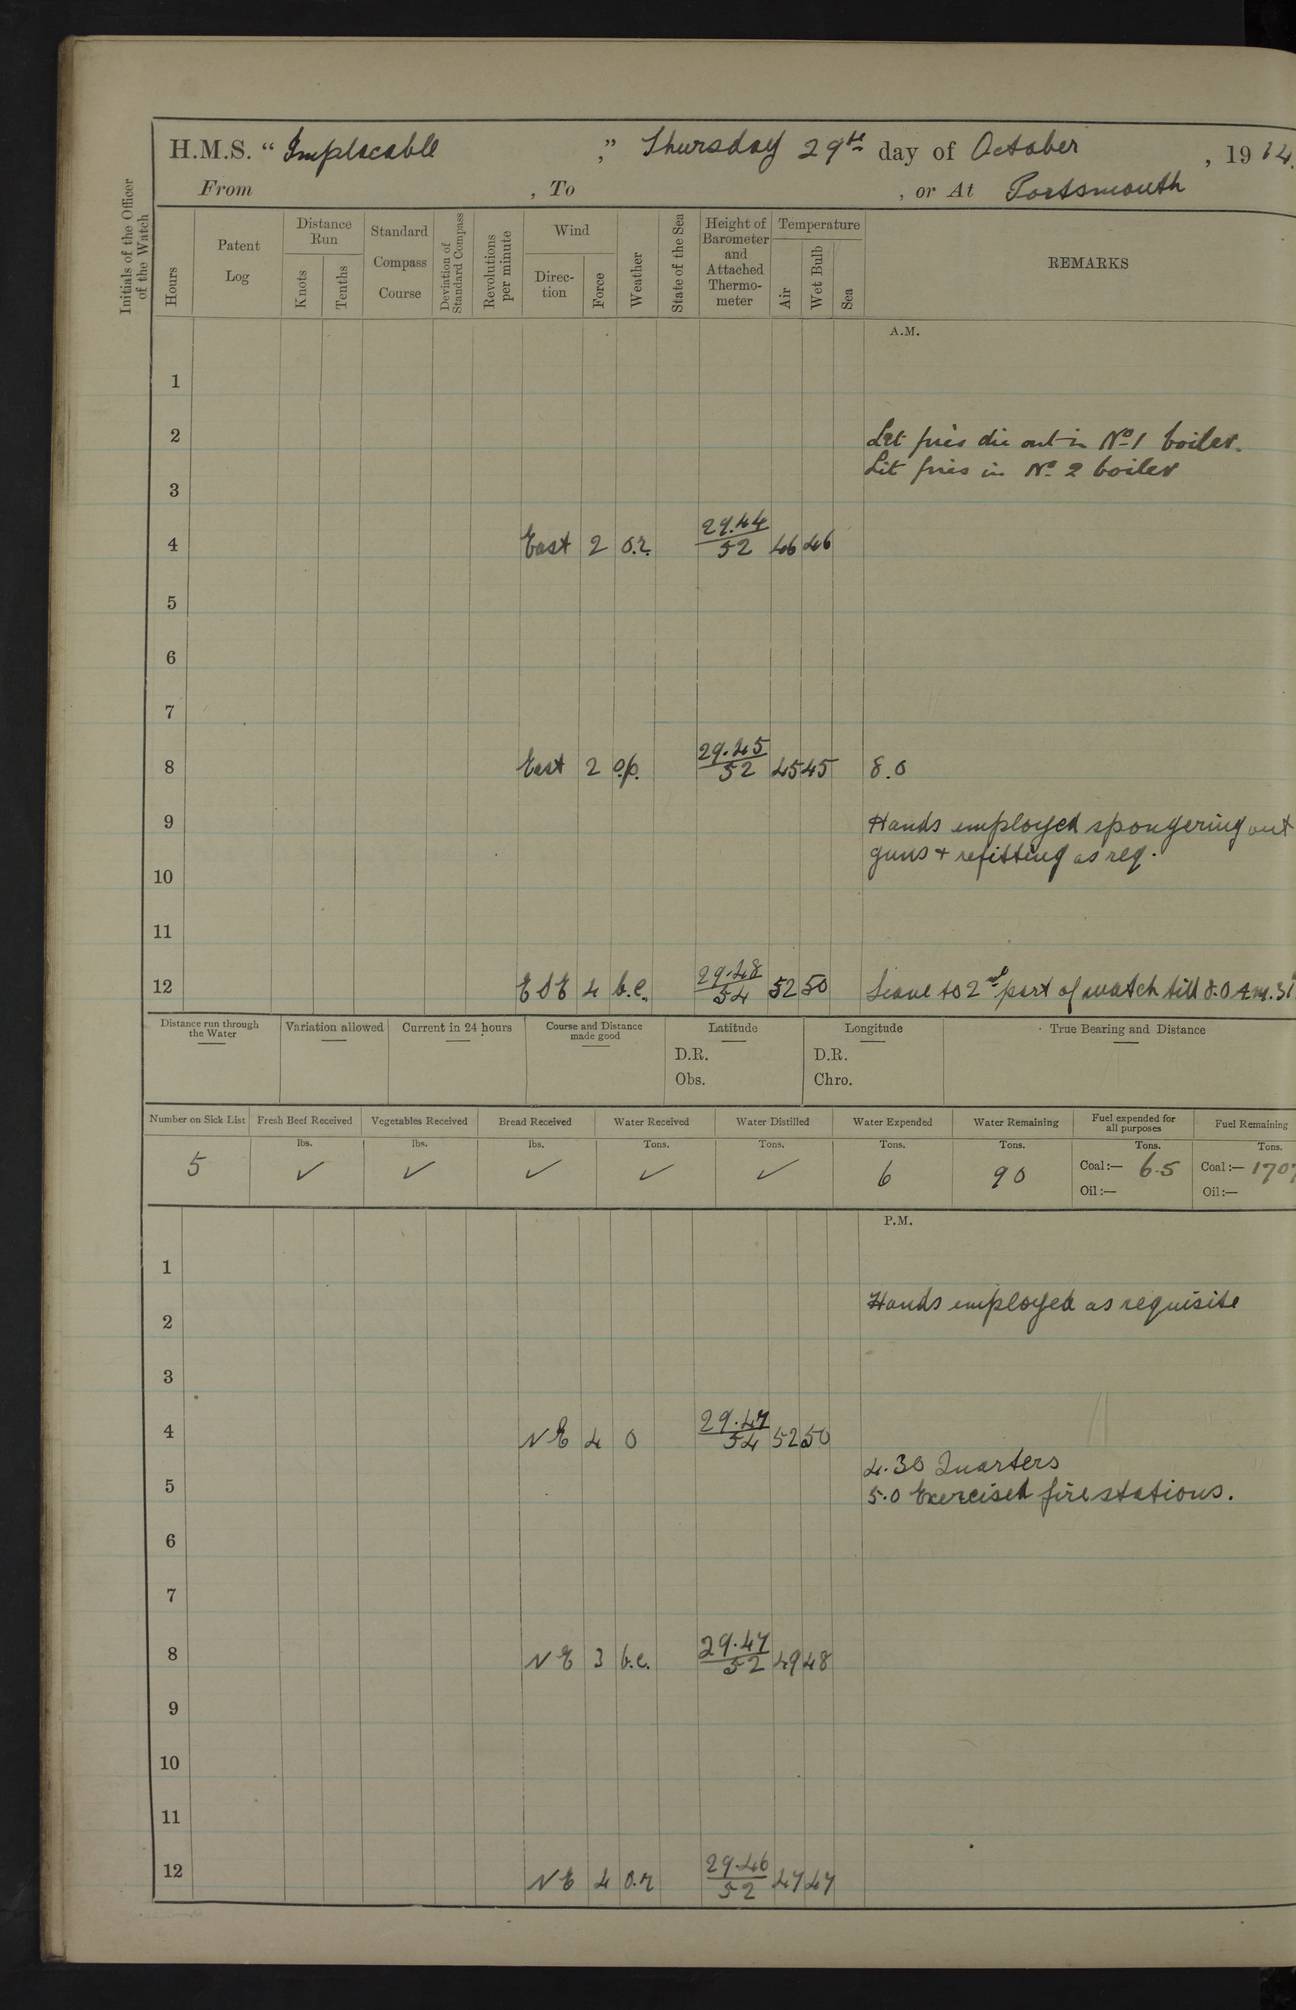 H.M.S. “ Implacable ,” Thursday 29th day of October , 1914.
From , To , or At Portsmouth
Initials of the Officer of the Watch
Hours
Patent Log
Distance Run
Knots
Tenths
Standard Compass Course
Deviation of Standard Compass
Revolutions per minute
Wind
Direc-tion
Force
Weather
State of the Sea
Height of Barometer and Attached Thermo-meter
Temperature
Air
Wet Bulb
Sea
REMARKS
A.M.
1
2 Let fires die out in No 1 boiler.
Lit fires in No 2 boiler
3
4 East 2 o.r. 29.44/52 46 46
5
6
7
8 East 2 o.p. 29.45/52 45 45 8.0
9 Hands employed spongering out
guns + refitting as req.
10
11
12 ESE 4 b.c. 29.48/54 52 50 Leave to 2nd part of watch till 8.0 A.m. 31
Distance run through the Water
Variation allowed
Current in 24 hours
Course and Distance made good
Latitude
D.R.
Obs.
Longitude
D.R.
Chro.
True Bearing and Distance
Number on Sick List
Fresh Beef Received
Vegetables Received
Bread Received
Water Received
Water Distilled
Water Expended
Water Remaining
Fuel expended for all purposes
Fuel Remaining
lbs. lbs. lbs. Tons. Tons. Tons. Tons. Tons. Tons.
5 ✓ ✓ ✓ ✓ ✓ 6 90 Coal :— 6.5 Coal :— 1707
Oil :— Oil :—
P.M.
1
2 Hands employed as requisite
3
4 NE 4 o 29.47/54 52 50
4.30 Quarters
5 5.0 Exercised fire stations.
6
7
8 NE 3 b.c. 29.47/52 49 48
9
10
11
12 NE 4 o.r 29.46/52 47 47